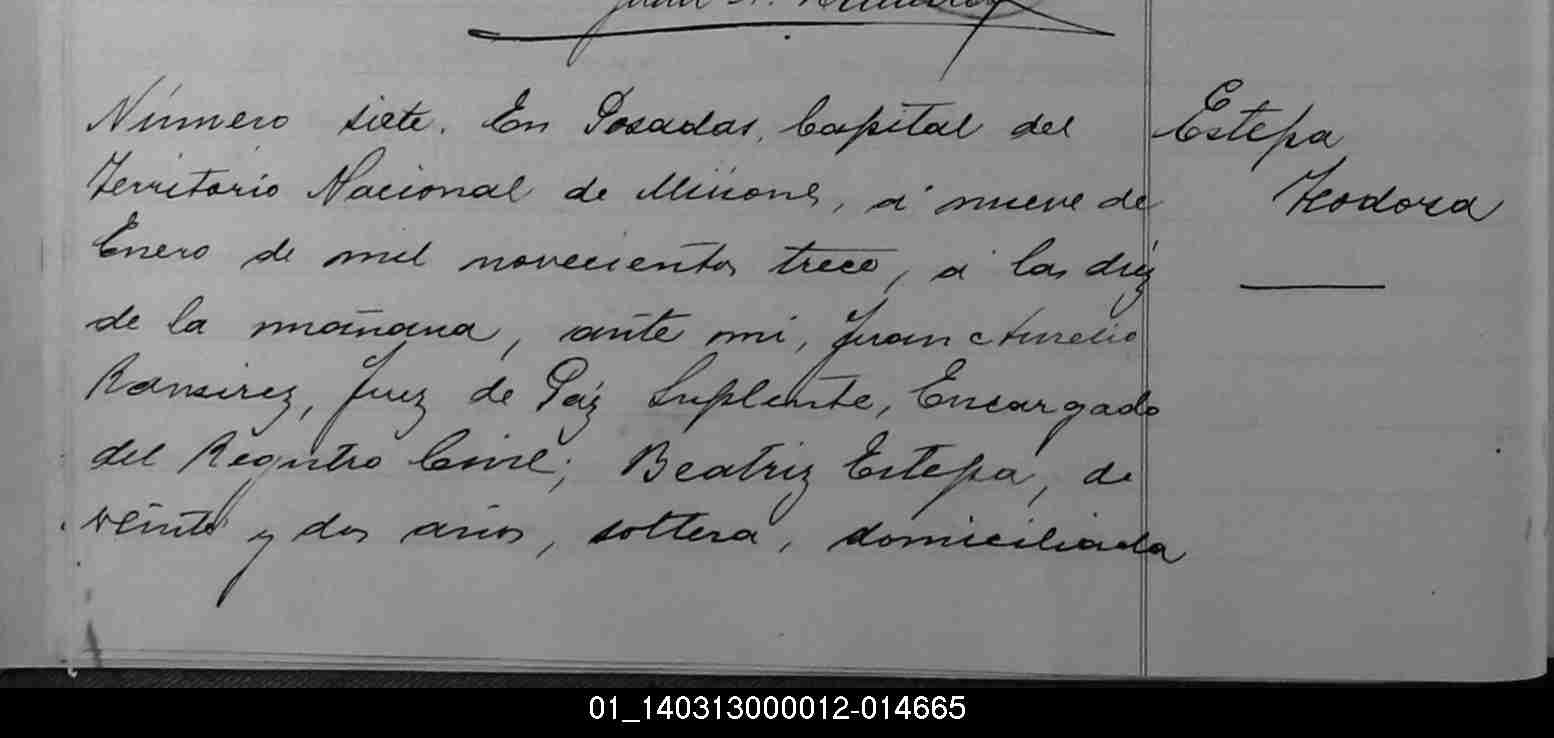 Número siete. En Posadas, Capital del
Territorio Nacional de Misiones, á nueve de
Enero de mil novecientos trece, á las diéz
de la mañana, ante mi, Juan Aurelio
Ramirez, Juez de Páz Suplente, Encargado
del Registro Civil; Beatriz Estepa, de
veinte y dos años, soltera, domiciliada
Estepa
Teodora
01_140313000012-014665